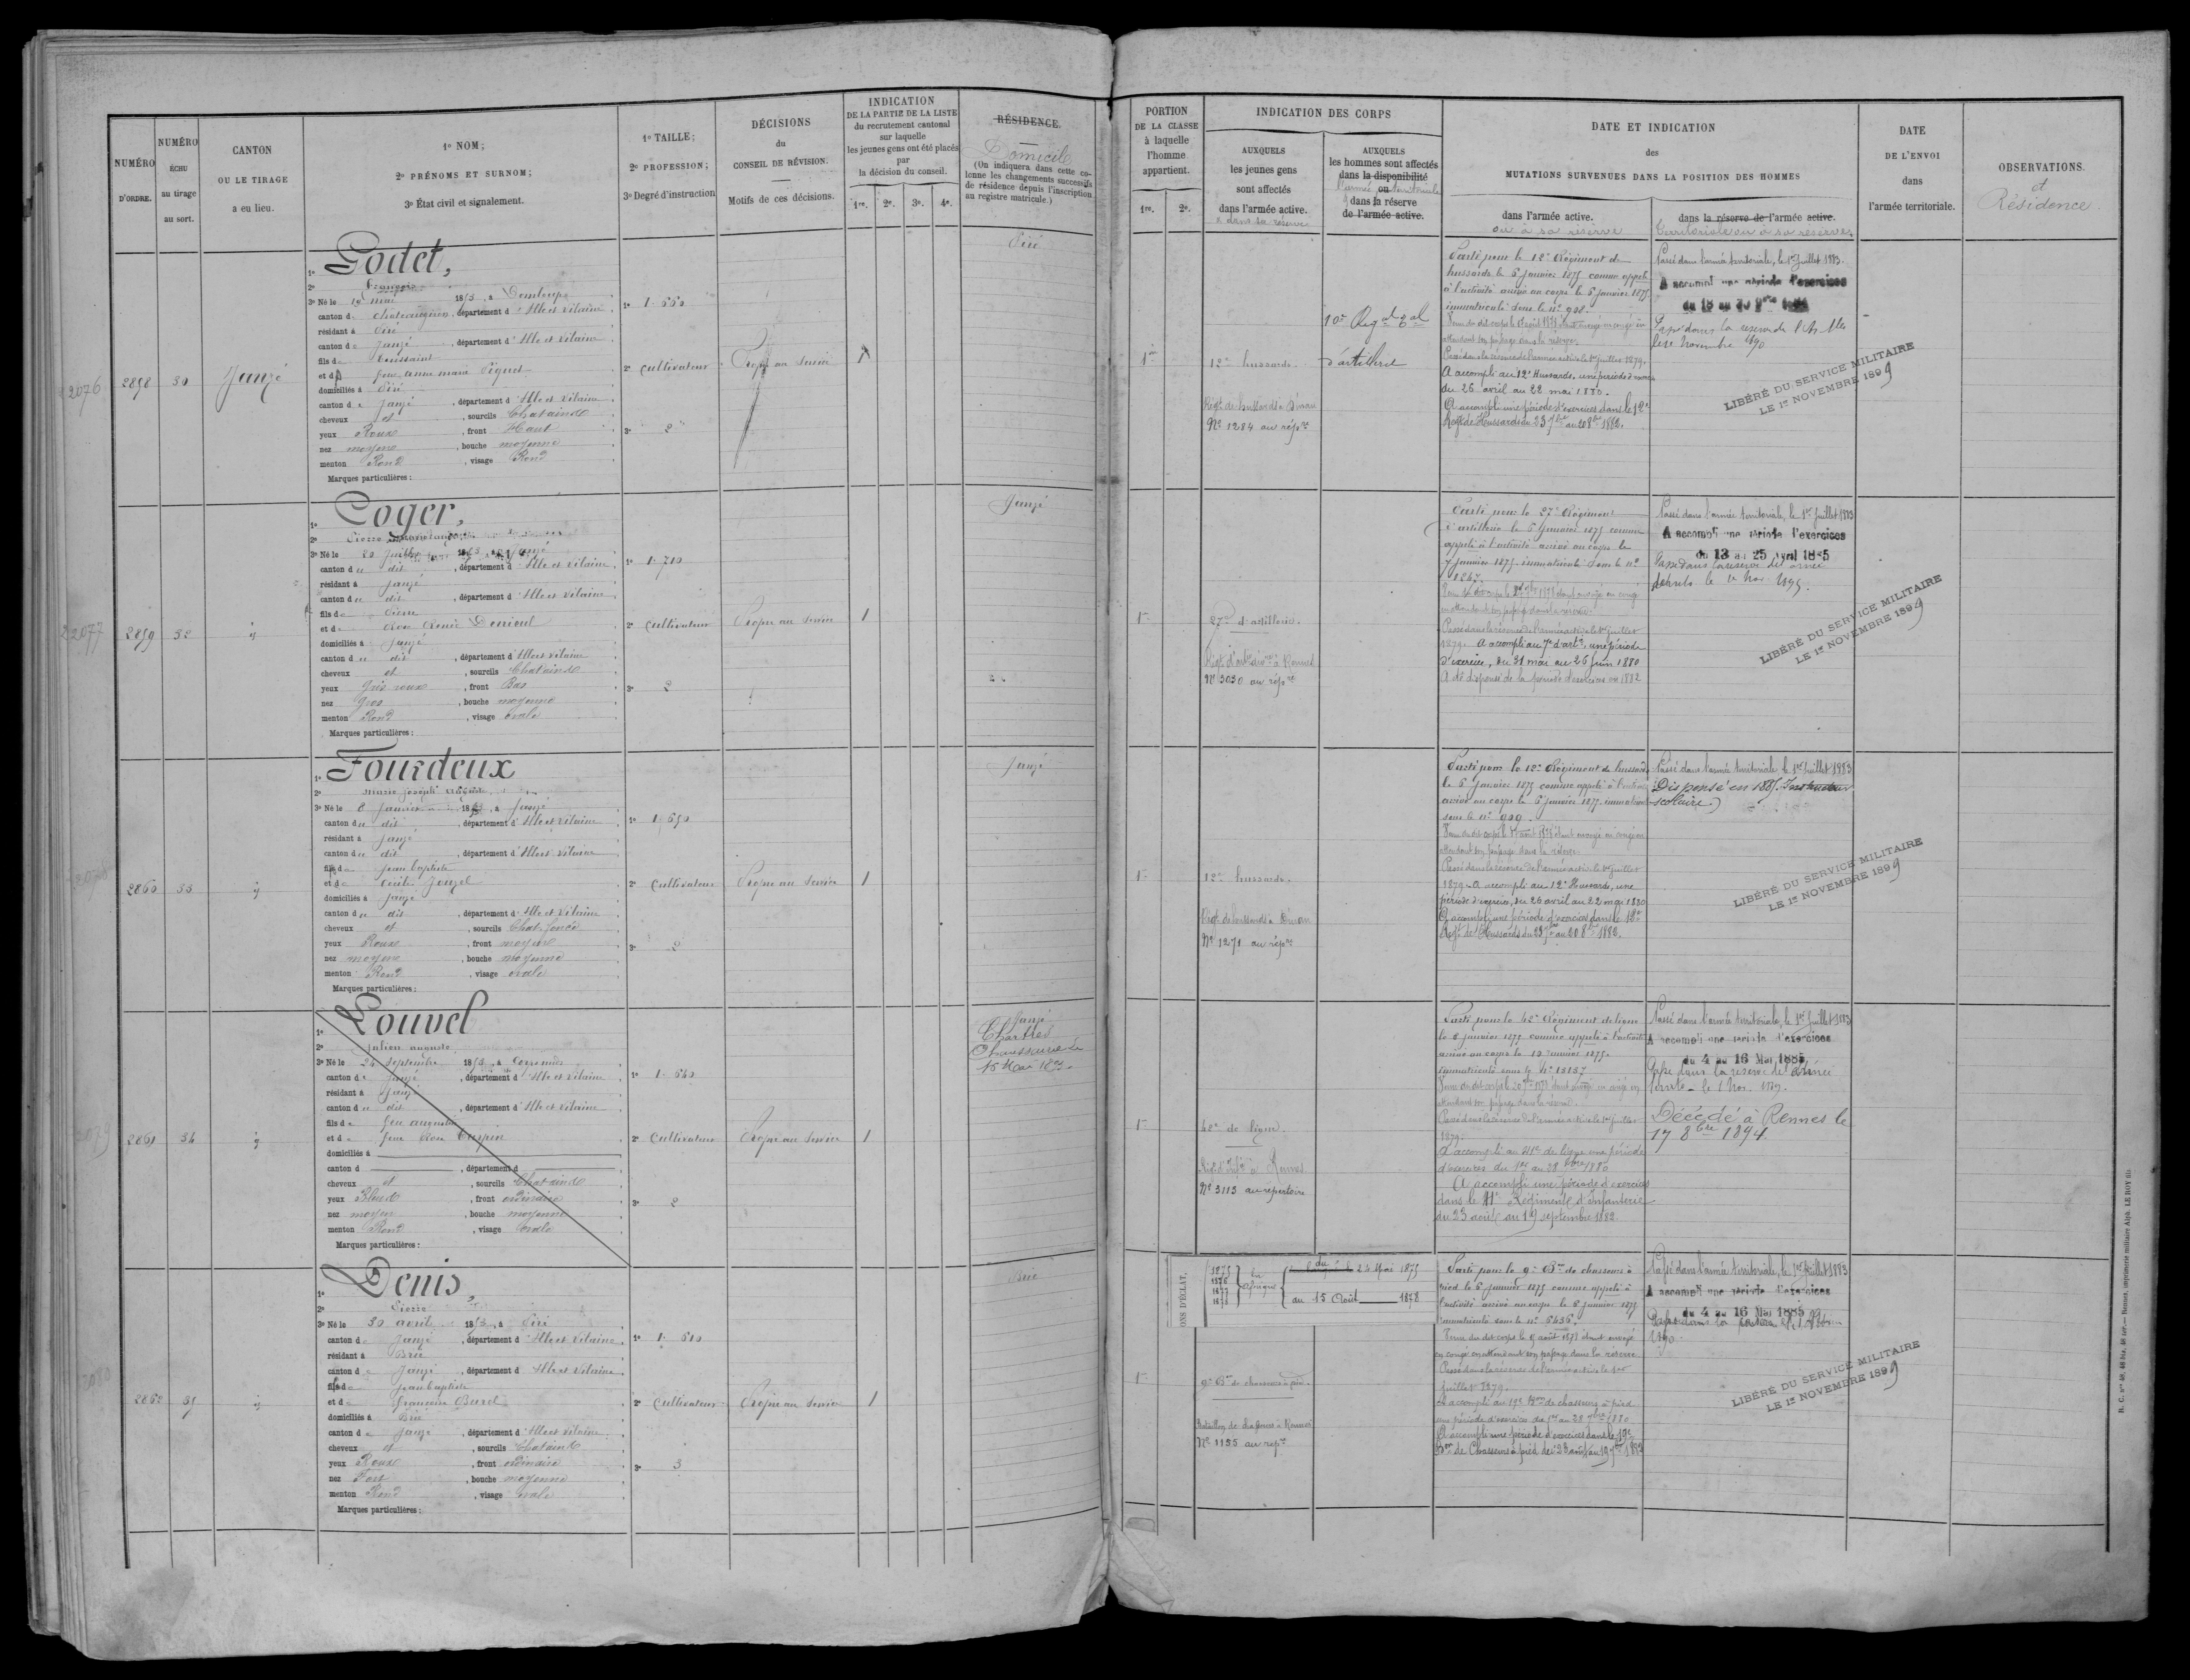 NUMÉRO
D'ORDRE.
NUMÉRO
ÉCHU
au tirage
au sort.
CANTON
OU LE TIRAGE
a eu lieu.
1º NOM;
2º PRÉNOMS ET SURNOM;
3º État civil et signalement.
1º TAILLE;
2º PROFESSION;
3º Degré d'instruction
DÉCISIONS
du
CONSEIL DE RÉVISION.
Motifs de ces décisions.
INDICATION
DE LA PARTIE DE LA LISTE
du recrutement cantonal
sur laquelle
les jeunes gens ont été placés
par
la décision du conseil.
1re. 2e. 3e. 4e.
RÉSIDENCE.
Domicile
(On indiquera dans cette co-
lonne les changements successifs
de résidence depuis l'inscription
au registre matricule.)
PORTION
DE LA CLASSE
à laquelle
l'homme
appartient.
1re. 2e.
INDICATION DES CORPS
AUXQUELS
les jeunes gens
sont affectés
dans l'armée active.
et dans sa réserve
AUXQUELS
les hommes sont affectés
dans la disponibilité
ou
l'armée territoriale
dans la réserve
de l'armée active.
DATE ET INDICATION
des
MUTATIONS SURVENUES DANS LA POSITION DES HOMMES
dans l'armée active.
ou à sa réserve
dans la réserve de l'armée active.
territoriale ou à sa réserve.
DATE
DE L'ENVOI
dans
l'armée territoriale.
OBSERVATIONS.
et
Résidence.
2858
30
Janzé
Godet,
François
3º Né le 19 mai 1853, à Domloup
canton de Chateaugiron, département d'Ille et Vilaine
résidant à Piré
canton de Janzé, département d'Ille et Vilaine
fils de Toussaint
et de feue anne marie
domiciliés à Piré
canton de Janzé, département d'Ille et Vilaine
cheveux et, sourcils Chatains
yeux Roux, front Haut
nez moyen, bouche moyenne
menton Rond, visage Rond
Marques particulières :
1º 1. 660
2º Cultivateur
3º 2
Propre au Service
1
Piré
1re
12e hussards.
Régt. de hussards à Dinan
Nº 1284 au répre
10e Régt
d'artillerie
Parti pour le 12e Régiment de
hussards le 5 Janvier 1875 comme appelé
à l'activité arrivé au corps le 6 janvier 1875
immatriculé sous le nº 908.
attendant son passage dans la réserve.
Passé dans la réserve de l'armée active le 1er juillet 1879.
A accompli au 12e Hussards, une période d'exercices
du 26 avril au 22 mai 1880.
A accompli une période d'exercices dans le 12e
Régt de Hussards du 23 7bre au 20 8bre 1882.
Passé dans l'armée territoriale, le 1er Juillet 1883.
A accompli une période d'exercices
Passé dans la réserve de l'A. Tle
le 1er Novembre 1890
LIBÉRÉ DU SERVICE MILITAIRE
LE 1er NOVEMBRE 1899
2859
32
id
Coger,
Pierre
3º Né le 20 Juillet 1853, à Janzé
canton du dit, département d'Ille et Vilaine
résidant à Janzé
canton du dit, département d'Ille et Vilaine
fils de Pierre
et de Renée
domiciliés à Janzé
canton du dit, département d'Ille et Vilaine
cheveux et, sourcils Chatains
yeux gris roux, front Bas
nez gros, bouche moyenne
menton Rond, visage ovale
Marques particulières :
1º 1. 710
2º Cultivateur
3º 2
Propre au Service
1
Janzé
1re
27e d'artillerie.
Nº 3030 au répre
Parti pour le 27e Régiment
d'artillerie le 5 Janvier 1875 comme
appelé à l'activité arrivé au corps le
7 janvier 1875 immatriculé sous le nº
1267.
en attendant son passage dans la réserve.
Passé dans la réserve de l'armée active le 1er juillet
1879. A accompli au 7e d'artie, une période
d'exercice, du 31 mai au 26 juin 1880
A été dispensé de la période d'exercices en 1882
Passé dans l'armée territoriale, le 1er Juillet 1883
A accompli une période d'exercices
du 13 au 25 Avril 1885
Passé dans la réserve de l'armée
LIBÉRÉ DU SERVICE MILITAIRE
LE 1er NOVEMBRE 1899
2860
33
id
Fourdeux
Marie Joseph
3º Né le 8 Janvier 1853, à Janzé
canton du dit, département d'Ille et Vilaine
résidant à Janzé
canton du dit, département d'Ille et Vilaine
fils de Jean baptiste
et de
domiciliés à Janzé
canton du dit, département d'Ille et Vilaine
cheveux et, sourcils Chat. foncé
yeux Roux, front moyen
nez moyen, bouche moyenne
menton Rond, visage ovale
Marques particulières :
1º 1. 690
2º Cultivateur
3º 2
Propre au Service
1
Janzé
1re
12e hussards.
Régt. de hussards à Dinan
Nº 1271 au répre
Parti pour le 12e Régiment de hussards
le 5 Janvier 1875 comme appelé à l'activité
arrivé au corps le 6 Janvier 1875 immatriculé
sous le nº 909.
attendant son passage dans la réserve.
Passé dans la réserve de l'armée active le 1er juillet
1879. A accompli au 12e Hussards, une
période d'exercices, du 26 avril au 22 mai 1880
A accompli une période d'exercices dans le 12e
Régt de Hussards du 23 7bre au 20 8bre 1882.
Passé dans l'armée territoriale, le 1er Juillet 1883
(Dispensé en 1885. Instructeur
scolaire.)
LIBÉRÉ DU SERVICE MILITAIRE
LE 1er NOVEMBRE 1899
2861
34
id
Louvel
Julien auguste
3º Né le 24 Septembre 1853, à Corps nuds
canton de Janzé, département d'Ille et Vilaine
résidant à Janzé
canton du dit, département d'Ille et Vilaine
fils de feu augustin
et de feue Rose
domiciliés à
canton d, département d
cheveux et, sourcils Chatains
yeux Bleus, front ordinaire
nez moyen, bouche moyenne
menton Rond, visage ovale
Marques particulières :
1º 1. 640
2º Cultivateur
3º 2
Propre au Service
1
Janzé
1re
42e de ligne.
Nº 3113 au répertoire
Parti pour le 42e Régiment de ligne
le 8 janvier 1875 comme appelé à l'activité
arrivé au corps le 10 Janvier 1875.
immatriculé sous le nº 15157
attendant son passage dans la réserve.
Passé dans la réserve de l'armée active le 1er juillet
1879.
A accompli au 41e de ligne une période
d'exercices du 1er au 28 7bre 1880
A accompli une période d'exercices
dans le 41e Régiment d'Infanterie
du 23 août au 19 septembre 1882.
Passé dans l'armée territoriale, le 1er Juillet 1883
A accompli une période d'exercices
du 4 au 16 Mai 1885
Passé dans la réserve de l'armée
Décédé à Rennes le
17 8bre 1894.
2862
35
id
Denis,
Pierre
3º Né le 30 avril 1853, à Piré
canton de Janzé, département d'Ille et Vilaine
résidant à Brie
canton de Janzé, département d'Ille et Vilaine
fils de Jean baptiste
et de françoise Burel
domiciliés à Brie
canton de Janzé, département d'Ille et Vilaine
cheveux et, sourcils Chatains
yeux Roux, front ordinaire
nez Fort, bouche moyenne
menton Rond, visage ovale
Marques particulières :
1º 1. 610
2º Cultivateur
3º 3
Propre au Service
1
Brie
ONS D'ÉCLAT,
1875
1876
1877
1878
En
Afrique
du 24 Mai 1875
au 15 Août 1878
1re
9e Bon de chasseurs à pied.
Bataillon de chasseurs à Rennes
Nº 1155 au répre
Parti pour le 9e Bon de chasseurs à
pied le 5 Janvier 1875 comme appelé à
l'activité arrivé au corps le 6 Janvier 1875
immatriculé sous le nº 5436.
en congé en attendant son passage dans la réserve
Passé dans la réserve de l'armée active le 1er
Juillet 1879.
A accompli au 19e Bon de chasseurs à pied
une période d'exercice du 1er au 28 7bre 1880
A accompli une période d'exercices dans le 19e
Bon de Chasseurs à pied du 23 août au 19 7bre 1882
Passé dans l'armée territoriale, le 1er Juillet 1883
A accompli une période d'exercices
du 4 au 16 Mai 1885
1890.
LIBÉRÉ DU SERVICE MILITAIRE
LE 1er NOVEMBRE 1899